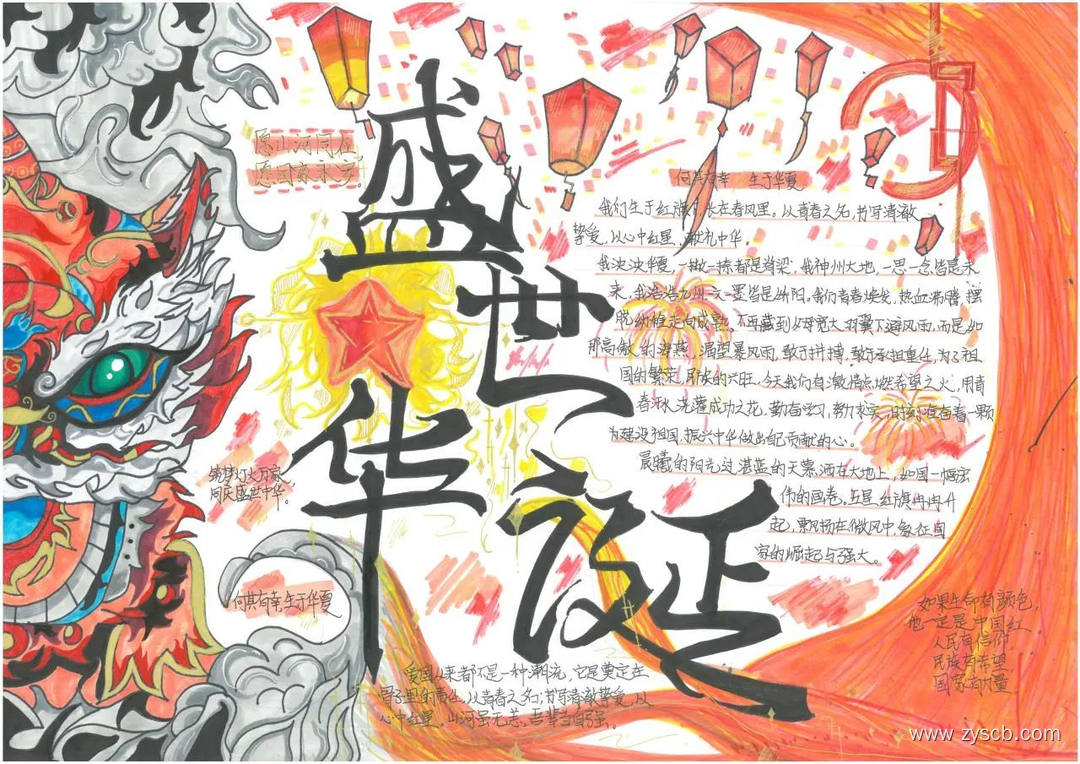 盛世华诞
愿山河同在
愿国家永安
何其有幸 生于华夏
我们生于红旗下,长在春风里。从青春之名,书写清澈
挚爱,以心中红星,献礼中华。
我泱泱华夏,一撇一捺都是脊梁,我神州大地,一思一念皆是未
来,我浩浩九州一文一墨皆是骄阳。我们青春焕发,热血沸腾,摆
脱幼稚走向成熟。不再藏到父母宽大羽翼下避风雨,而是如
那高傲的海燕,渴望暴风雨,敢于拼搏,敢于承担重任,为了祖
国的繁荣,民族的兴旺。今天我们自激情点燃希望之火,用青
春浇灌成功之花,勤奋学习,努力求实,时刻准备着一颗
为建设祖国,振兴中华做出贡献的心。
晨曦的阳光,透过湛蓝的天幕,洒在大地上,如同一幅宏
伟的画卷。五星红旗冉冉升
起,飘扬在微风中,象征国
家的崛起与强大。
筑梦灯火万家
同庆盛世中华。
何其有幸生于华夏
爱国从来都不是一种潮流,它是奠定在
骨子里的责任,从青春之名,书写清澈挚爱,以
心中红星。山河虽无恙,吾辈当自强。
如果生命有颜色,
他一定是中国红
人民有信仰
民族有希望
国家有力量
www.zyscb.com